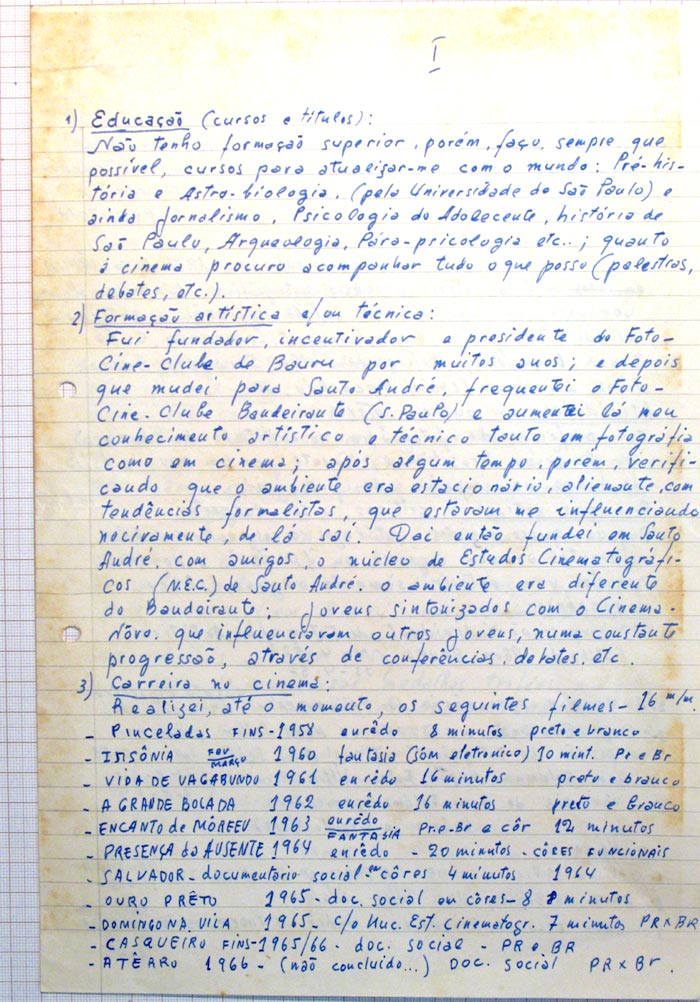 I
1) Educação (cursos e títulos):
Não tenho formação superior, porém, faço, sempre que
possível, cursos para atualisar-me com o mundo: Pré-his-
tória e Astro-biologia, (pela Universidade de São Paulo) e
ainda Jornalismo, Psicologia do Adolecente, história de
São Paulo, Arqueologia, Pára-psicologia etc..; quanto
á cinema procuro acompanhar tudo o que posso (palestras,
debates, etc.).
2) Formação artística e/ou técnica:
Fui fundador, incentivador e presidente do Foto-
Cine-Clube de Bauru por muitos anos; e depois
que mudei para Santo André, frequentei o Foto-
Cine-Clube Bandeirante (S. Paulo) e aumentei lá meu
conhecimento artístico e técnico tanto em fotográfia
como em cinema; após algum tempo, porem, verifi-
cando que o ambiente era estacionário, alienante, com
tendências formalistas, que estavam me influenciando
nocivamente, de lá saí. Daí então fundei em Santo
André, com amigos, o núcleo de Estudos Cinematográfi-
cos (N.E.C.) de Santo André. o ambiente era diferente
do Bandeirante; jovens sintonizados com o Cinema-
Nôvo, que influenciavam outros jovens, numa constante
progressão, através de conferências, debates, etc.
3) Carreira no cinema:
Realizei, até o momento, os seguintes filmes - 16 m/m.
- Pinceladas FINS-1958 enrêdo 8 minutos preto e branco
- INSÔNIA FEV MARÇO 1960 fantasia (sóm eletronico) 10 mint. Pr e Br
- VIDA DE VAGABUNDO 1961 enrêdo 16 minutos preto e branco
- A GRANDE BOLADA 1962 enrêdo 16 minutos preto e Branco
- ENCANTO de MOREEU 1963 enrêdo FANTASIA Pr.e.Br e côr 12 minutos
- PRESENÇA do AUSENTE 1964 enrêdo - 20 minutos - CÔRES FUNCIONAIS
- SALVADOR - documentário social em côres 4 minutos 1964
- OURO PRÊTO 1965 - doc. social em côres - 8 minutos
- DOMINGO NA VILA 1965 - c/o Nuc. Est. Cinematogr. 7 minutos PR x BR
- CASQUEIRO FINS-1965/66 - doc. social - PR e BR
- ATÊARO 1966 - (não concluido...) DOC. social PR x Br.